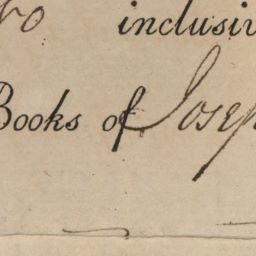 inclusiv
Books of Josep